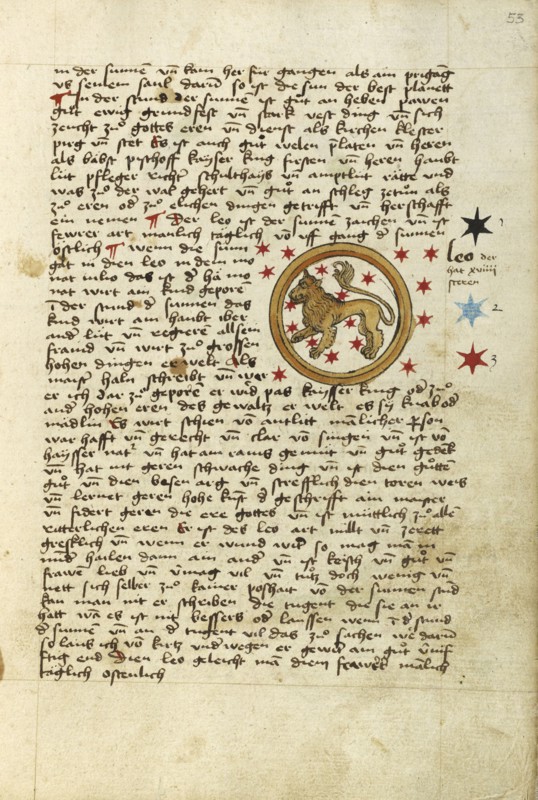 53
in der sunnē vn̄ kam her für gangen als ain prigāg
vs seinem saul darū so ist die sun der best planett
¶ In der stund der sunnē ist gůt an heben pawen
gůt ewig grundfest vn̄ stark vest ding vn̄ sich
zeucht zuͦ gottes eren vn̄ dienst als kirchen klester
purg vn̄ stet Es ist auch gůt welen p̄laten vn̄ heren
als bābst pischoff kaÿser king firsten vn̄ heren haubt
lüt pfleger richt̄ schulthaÿs vn̄ amptlüt rätte vnd
was zuͦ der wal gehert vn̄ gůt an schleg zetůn als
zuͦ eren od̄ zuͦ elichen dingen getrifft vn̄ herschafft
ein nemen ¶ Der leo ist der sunnē zaichen vn̄ ist
fewrer art manlich täglich vō vff gang d̄ sunnen
östlich ¶ wenn die sunn
gāt in dien leo in dem mo
nat iulio das ist d̄ hä mo
nat wirt ain kind geporē
ī der stund d̄ sunnen das
kind wirt ain haubt iber
and̄ lüt vn̄ regierē all sein
fraind vn̄ wirt zuͦ grossen
hohen dingen der welt als
maist̄ haln schreibt vn̄ wär
er ich dar zuͦ geporē er wird pas kaÿsser king od̄ zuͦ
and̄ hohen eren des gewaltz er welt es sÿ knab od̄
mädlin Es wirt schien vō antlitt mālicher p̄son
warhafft vn̄ gerecht vn̄ clar vō stimen vn̄ ist vō
haÿsser nat̄ vn̄ hat ain rains gemüt vn̄ gůt gedēk
vn̄ hat nit geren schwache ding vn̄ ist dien gůtten
gůt vn̄ dien bösen arg vn̄ strefflich dien toren weis
vn̄ lernet geren hohe kunst d̄ geschrifft ain maister
vn̄ fidert geren die ere gottes vn̄ ist müttlich zuͦ allē
ritterlichen eren Er ist des leo art milt vn̄ zerett
gresklich vn̄ wenn er wund wirt so mag mā in
mīd̄ hailen dann ain and̄ vn̄ ist keisch vn̄ gůt vn̄
frawē lieb vn̄ vmag vil vn̄ tůtz doch wenig vn̄
nett sich selber zuͦ kainer poshait vō der sunnen stund
kan man nit er schreiben die tugent die sie an ir
hatt wā es ist nit bessers od̄ laussen wenn ī d̄ stund
d̄ sunnē vn̄ an d̄ tugent vil das zuͦ suchen we darū
so laus ich vō kurtz
fig end Dien leo geleicht mā diem fewr mālich
täglich ostenlich
1
leo der
hat xviiij
steren
2
3